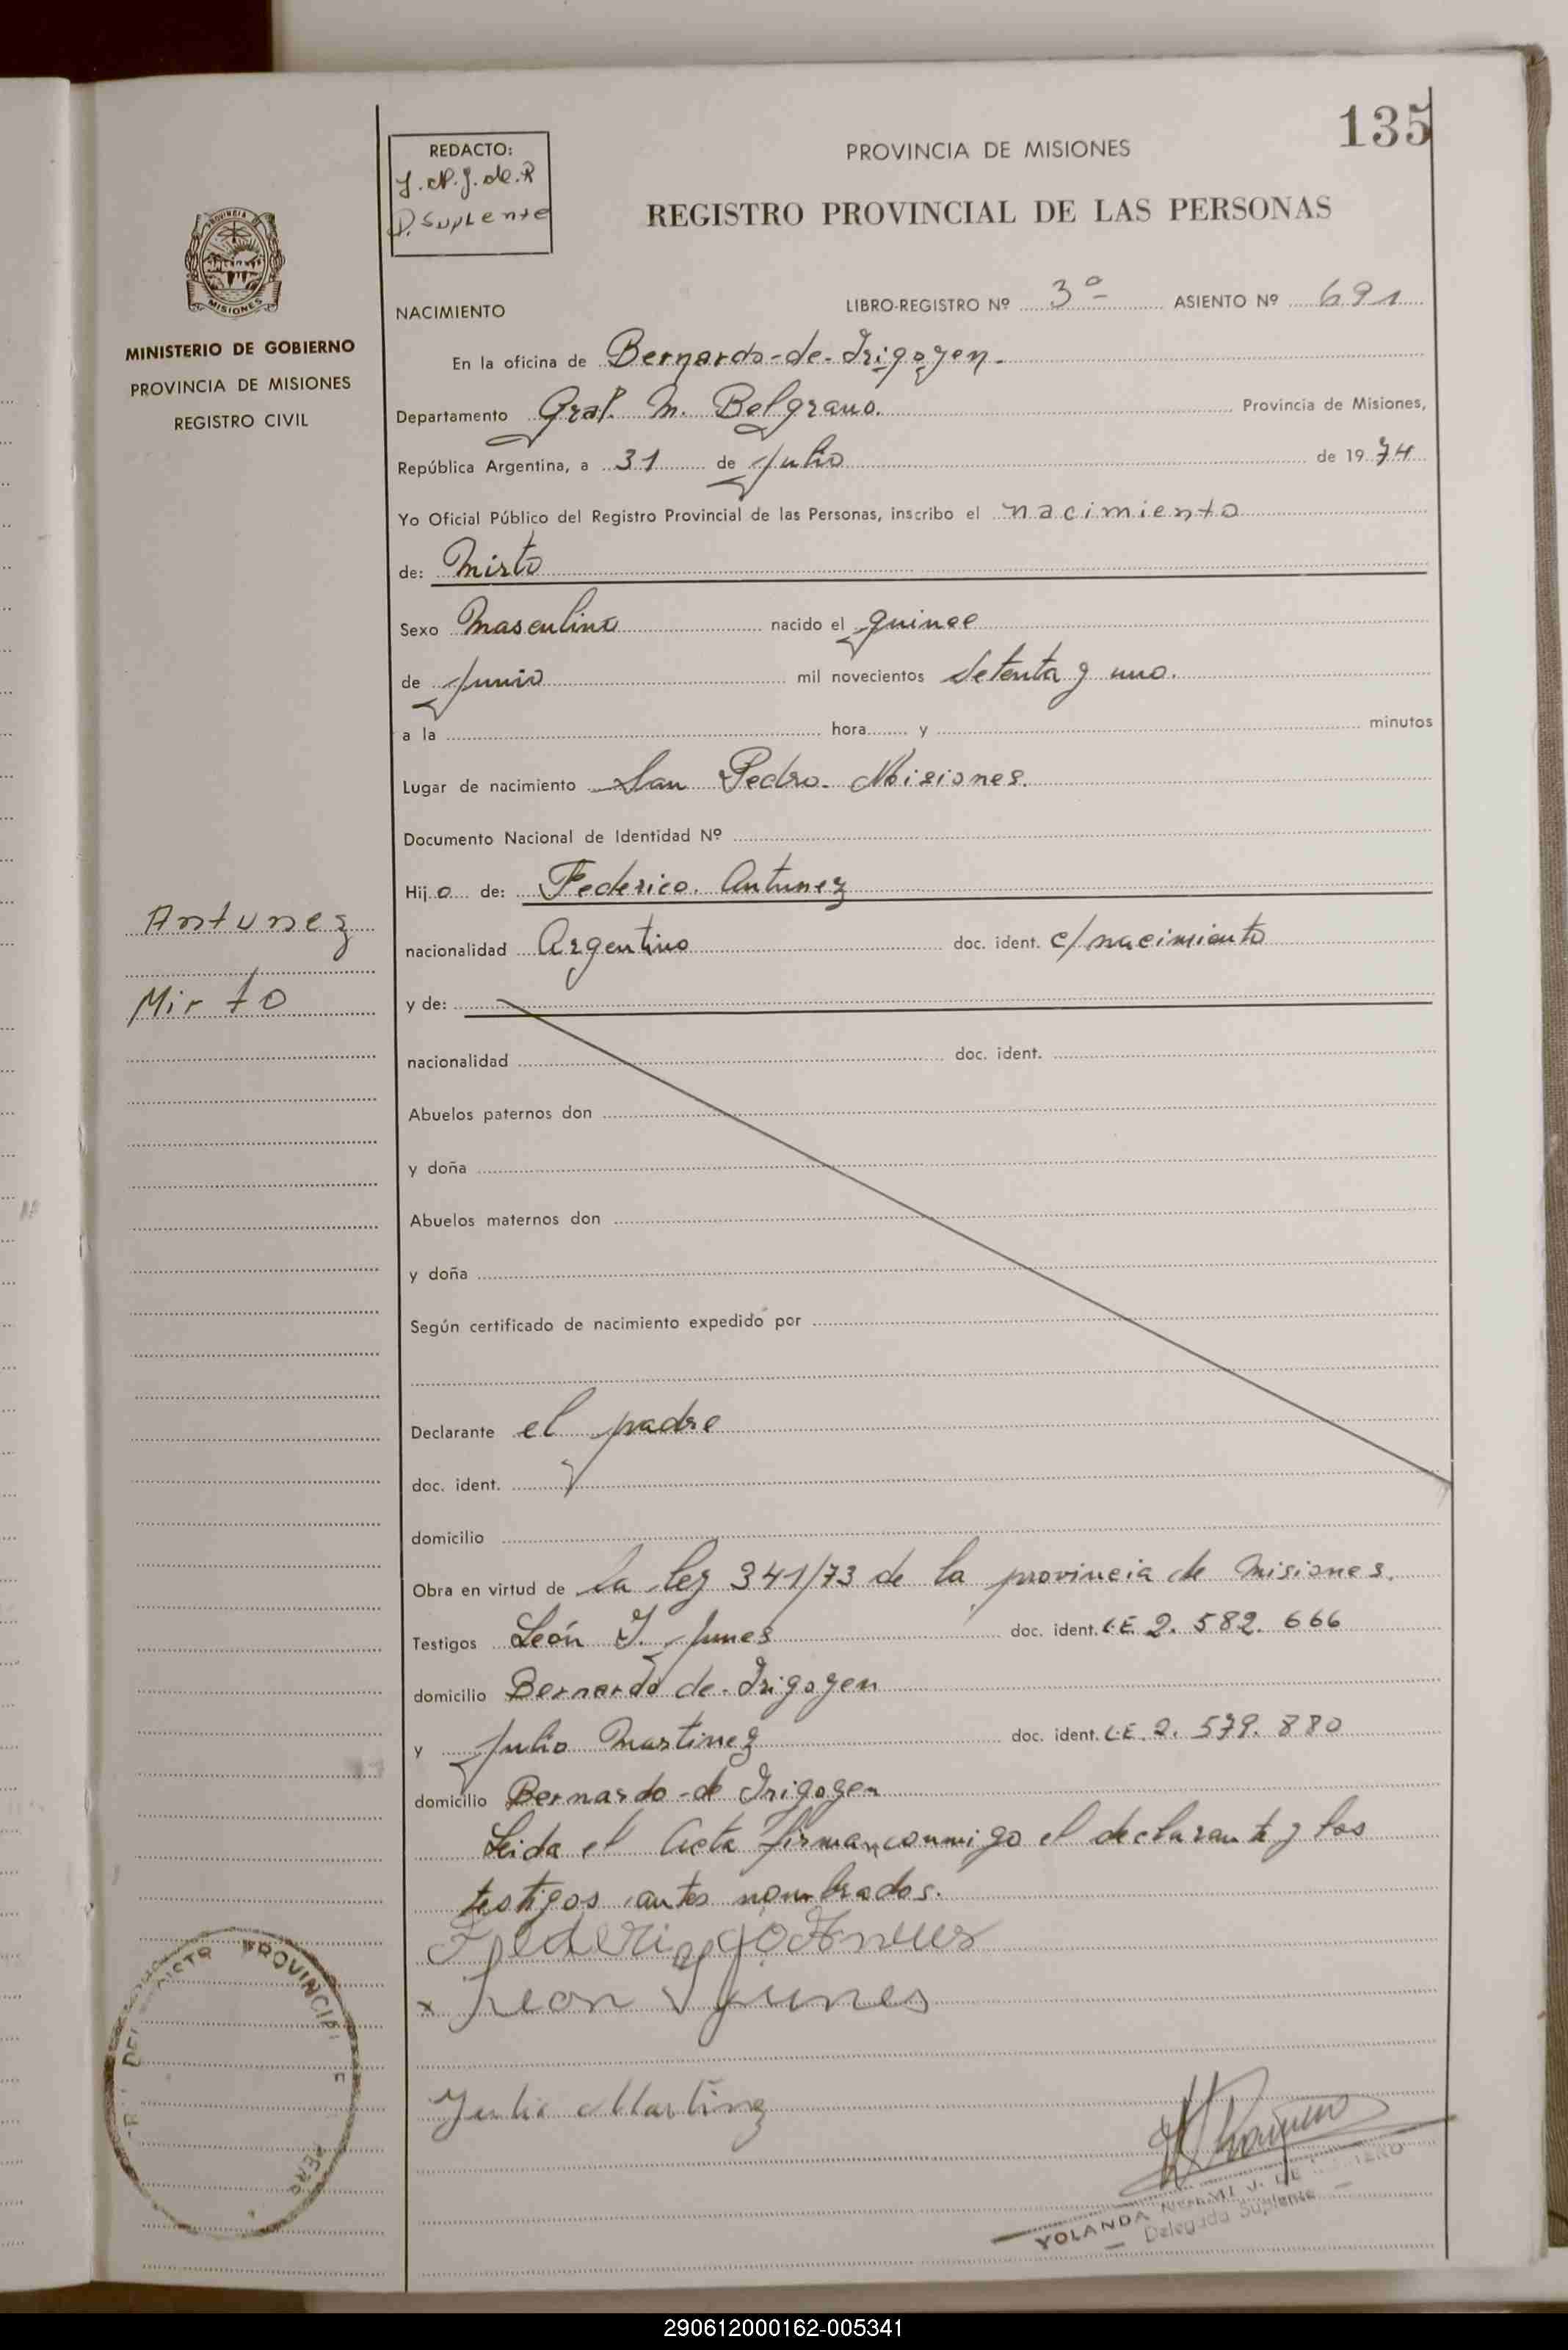 135
REDACTO:
Y.N.J.de.R
D. Suplente
PROVINCIA DE MISIONES
REGISTRO PROVINCIAL DE LAS PERSONAS
MISIONES
MINISTERIO DE GOBIERNO
PROVINCIA DE MISIONES
REGISTRO CIVIL
NACIMIENTO LIBRO-REGISTRO Nº 3º ASIENTO Nº 691
En la oficina de Bernardo-de-Irigoyen.
Departamento Gral. M. Belgrano. Provincia de Misiones,
República Argentina, a 31 de Julio de 1974
Yo Oficial Público del Registro Provincial de las Personas, inscribo el nacimiento
de: Mirto
Sexo Masculino nacido el quince
de Junio mil novecientos Setenta y uno.
a la hora y minutos
Lugar de nacimiento San Pedro. Misiones.
Documento Nacional de Identidad Nº
Hijo de: Federico. Antunez
Antunez
nacionalidad Argentino doc. ident. c/nacimiento
Mirto
y de:
nacionalidad doc. ident.
Abuelos paternos don
y doña
Abuelos maternos don
y doña
Según certificado de nacimiento expedido por
Declarante el padre
doc. ident.
domicilio
Obra en virtud de la ley 341/73 de la provincia de Misiones.
Testigos León Y. Junes doc. ident. L.E. 2.582.666
domicilio Bernardo de Irigoyen
y Julio Martinez doc. ident. L.E. 2.579.880
domicilio Bernardo-de Irigoyen
Leida el Acta firman conmigo el declarante y los
testigos antes nombrados.
x Leon Y Junes
Julio Martinz
PROVINCIA
YOLANDA J. DE
Delegada Suplente
290612000162-005341